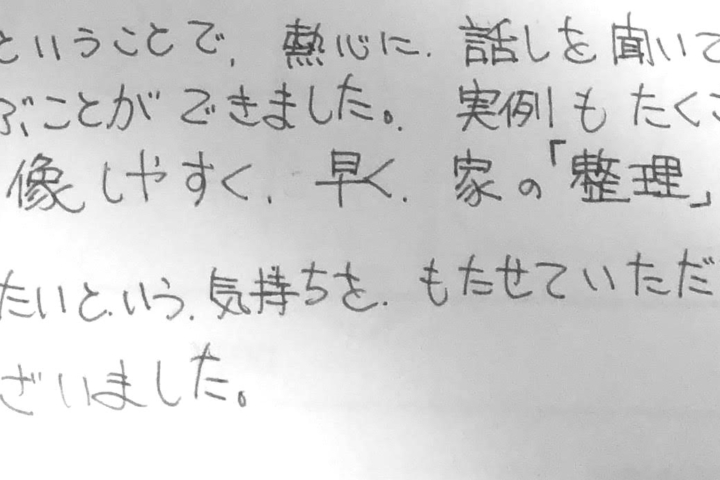 ということで、熱心に、話しを聞いて
ぶことができました。実例もたくさ
像しやすく、早く、家の「整理」
たいという、気持ちを、もたせていただ
ざいました。